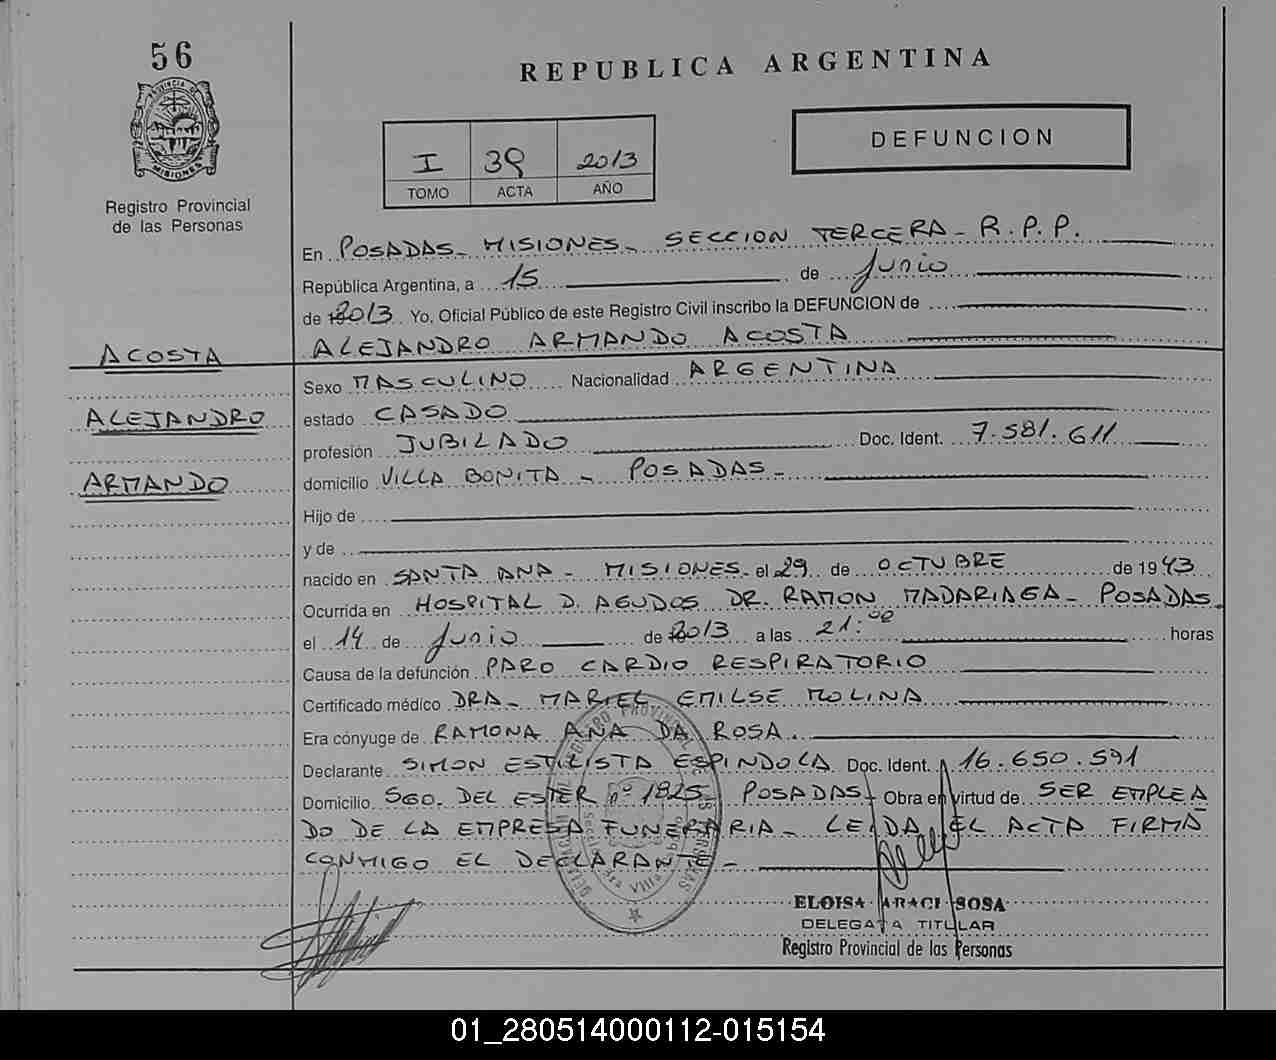 56
PROVINCIA DE
MISIONES
Registro Provincial
de las Personas
REPUBLICA ARGENTINA
I 39 2013
TOMO ACTA AÑO
DEFUNCION
En POSADAS - MISIONES - SECCION TERCERA - R.P.P.
República Argentina, a 15 de Junio
de 2013 Yo, Oficial Público de este Registro Civil inscribo la DEFUNCION de
ACOSTA
ALEJANDRO
ARMANDO
ALEJANDRO ARMANDO ACOSTA
Sexo MASCULINO Nacionalidad ARGENTINA
estado CASADO
profesión JUBILADO Doc. Ident. 7.581.611
domicilio VILLA BONITA - POSADAS -
Hijo de
y de
nacido en SANTA ANA - MISIONES - el 29 de OCTUBRE de 1943
Ocurrida en HOSPITAL D. AGUDOS DR. RAMON MADARIAGA - POSADAS -
el 14 de Junio de 2013 a las 21:00 horas
Causa de la defunción PARO CARDIO RESPIRATORIO
Certificado médico DRA - MARIEL EMILSE MOLINA
Era cónyuge de RAMONA ANA DA ROSA.
Declarante SIMON ESTILISTA ESPINDOLA Doc. Ident. 16.650.591
Domicilio SGO. DEL ESTER nº 1825 POSADAS Obra en virtud de SER EMPLEA
DO DE LA EMPRESA FUNERARIA - LEIDA EL ACTA FIRMA
CONMIGO EL DECLARANTE -
ELOISA ARACI SOSA
DELEGADA TITULAR
Registro Provincial de las Personas
01_280514000112-015154